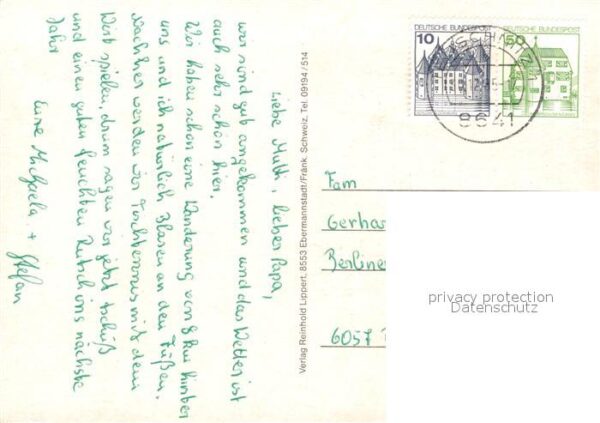 Liebe Mutti, lieber Papa,
wir sind gut angekommen und das Wetter ist
auch sehr schön hier.
Wir haben schon eine Wanderung von 8 km hinter
uns und ich natürlich Blasen an den Füßen.
Nachher werden wir mit dem
Wirt spielen, drum sagen wir jetzt tschüß
und einen guten feuchten Rutsch ins nächste
Jahr
Eure Michaela + Stefan
Verlag Reinhold Lippert, 8553 Ebermannstadt/Fränk. Schweiz, Tel. 09194 / 514
DEUTSCHE BUNDESPOST
10
DEUTSCHE BUNDESPOST
50
8641
Fam
Gerha
Berline
6057
privacy protection
Datenschutz